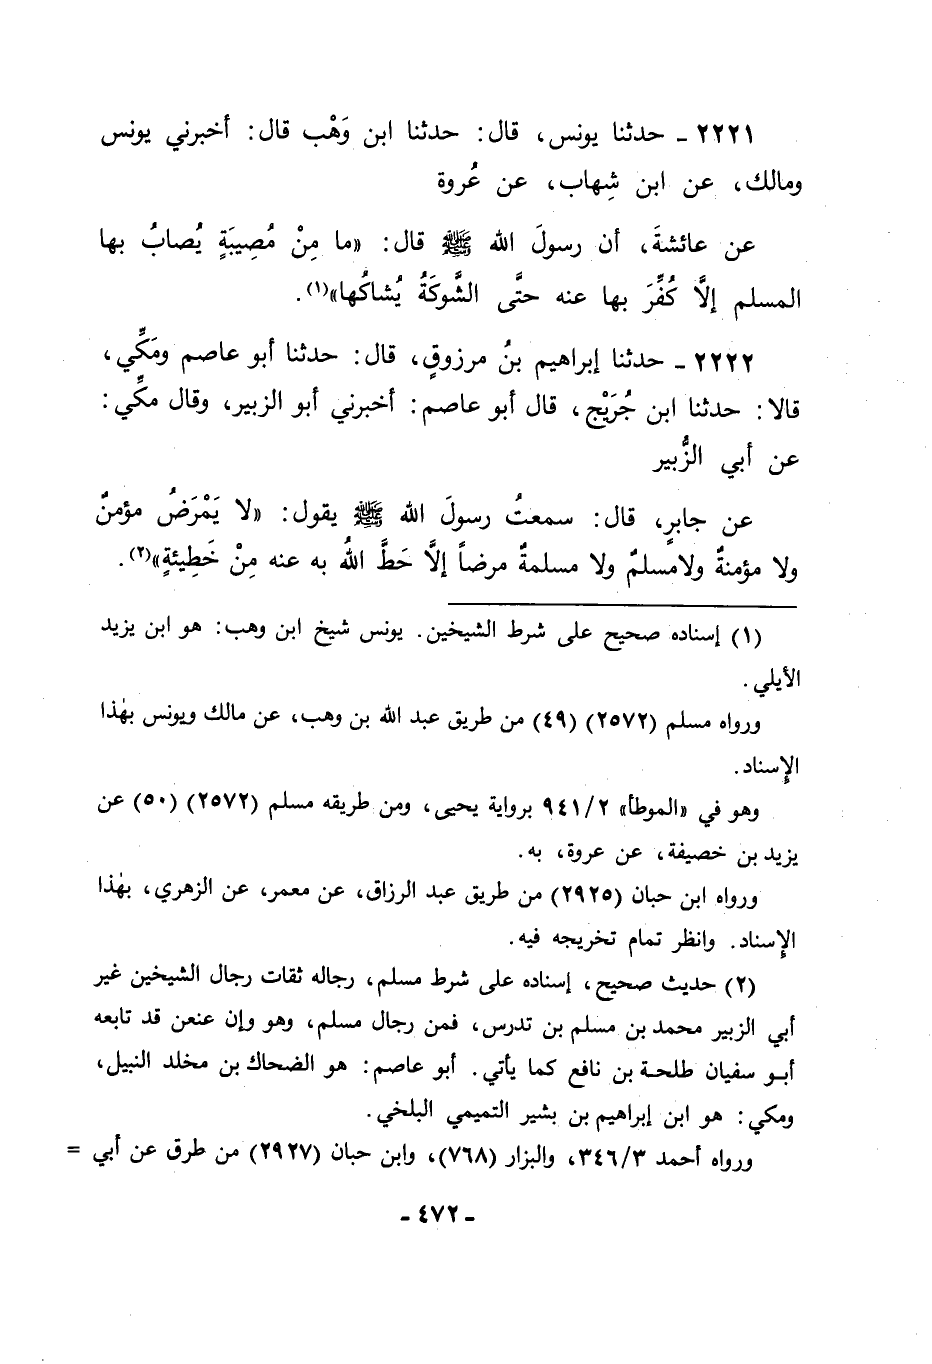 ٢٢٢١ ـ حدثنا يونس، قال: حدثنا ابن وَهْب قال: أخبرني يونس
ومالك، عن ابن شِهاب، عن عُروة
عن عائشةَ، أن رسولَ الله ﷺ قال: «ما مِنْ مُصِيبَةٍ يُصابُ بها
المسلم إلَّا كُفِّرَ بها عنه حتَّى الشَّوكَةُ يُشاكُها»(١).
٢٢٢٢ ـ حدثنا إبراهيم بنُ مرزوقٍ، قال: حدثنا أبو عاصم ومَكِّي،
قالا: حدثنا ابن جُرَيْج، قال أبو عاصم: أخبرني أبو الزبير، وقال مكِّي:
عن أبي الزُّبير
عن جابرٍ، قال: سمعتُ رسولَ الله ﷺ يقول: «لا يَمْرَضُ مؤمنٌ
ولا مؤمنةٌ ولامسلمٌ ولا مسلمةٌ مرضاً إلَّا حَطَّ اللهُ به عنه مِنْ خَطِيئةٍ»(٢).
(١) إسناده صحيح على شرط الشيخين. يونس شيخ ابن وهب: هو ابن يزيد
الأيلي.
ورواه مسلم (٢٥٧٢) (٤٩) من طريق عبد الله بن وهب، عن مالك ويونس بهٰذا
الإسناد.
وهو في «الموطأ» ٩٤١/٢ برواية يحيى، ومن طريقه مسلم (٢٥٧٢) (٥٠) عن
يزيد بن خصيفة، عن عروة، به.
ورواه ابن حبان (٢٩٢٥) من طريق عبد الرزاق، عن معمر، عن الزهري، بهٰذا
الإسناد. وانظر تمام تخريجه فيه.
(٢) حديث صحيح، إسناده على شرط مسلم، رجاله ثقات رجال الشيخين غير
أبي الزبير محمد بن مسلم بن تدرس، فمن رجال مسلم، وهو وإن عنعن قد تابعه
أبو سفيان طلحة بن نافع كما يأتي. أبو عاصم: هو الضحاك بن مخلد النبيل،
ومكي: هو ابن إبراهيم بن بشير التميمي البلخي.
ورواه أحمد ٣٤٦/٣، والبزار (٧٦٨)، وابن حبان (٢٩٢٧) من طرق عن أبي =
ـ ٤٧٢ ـ